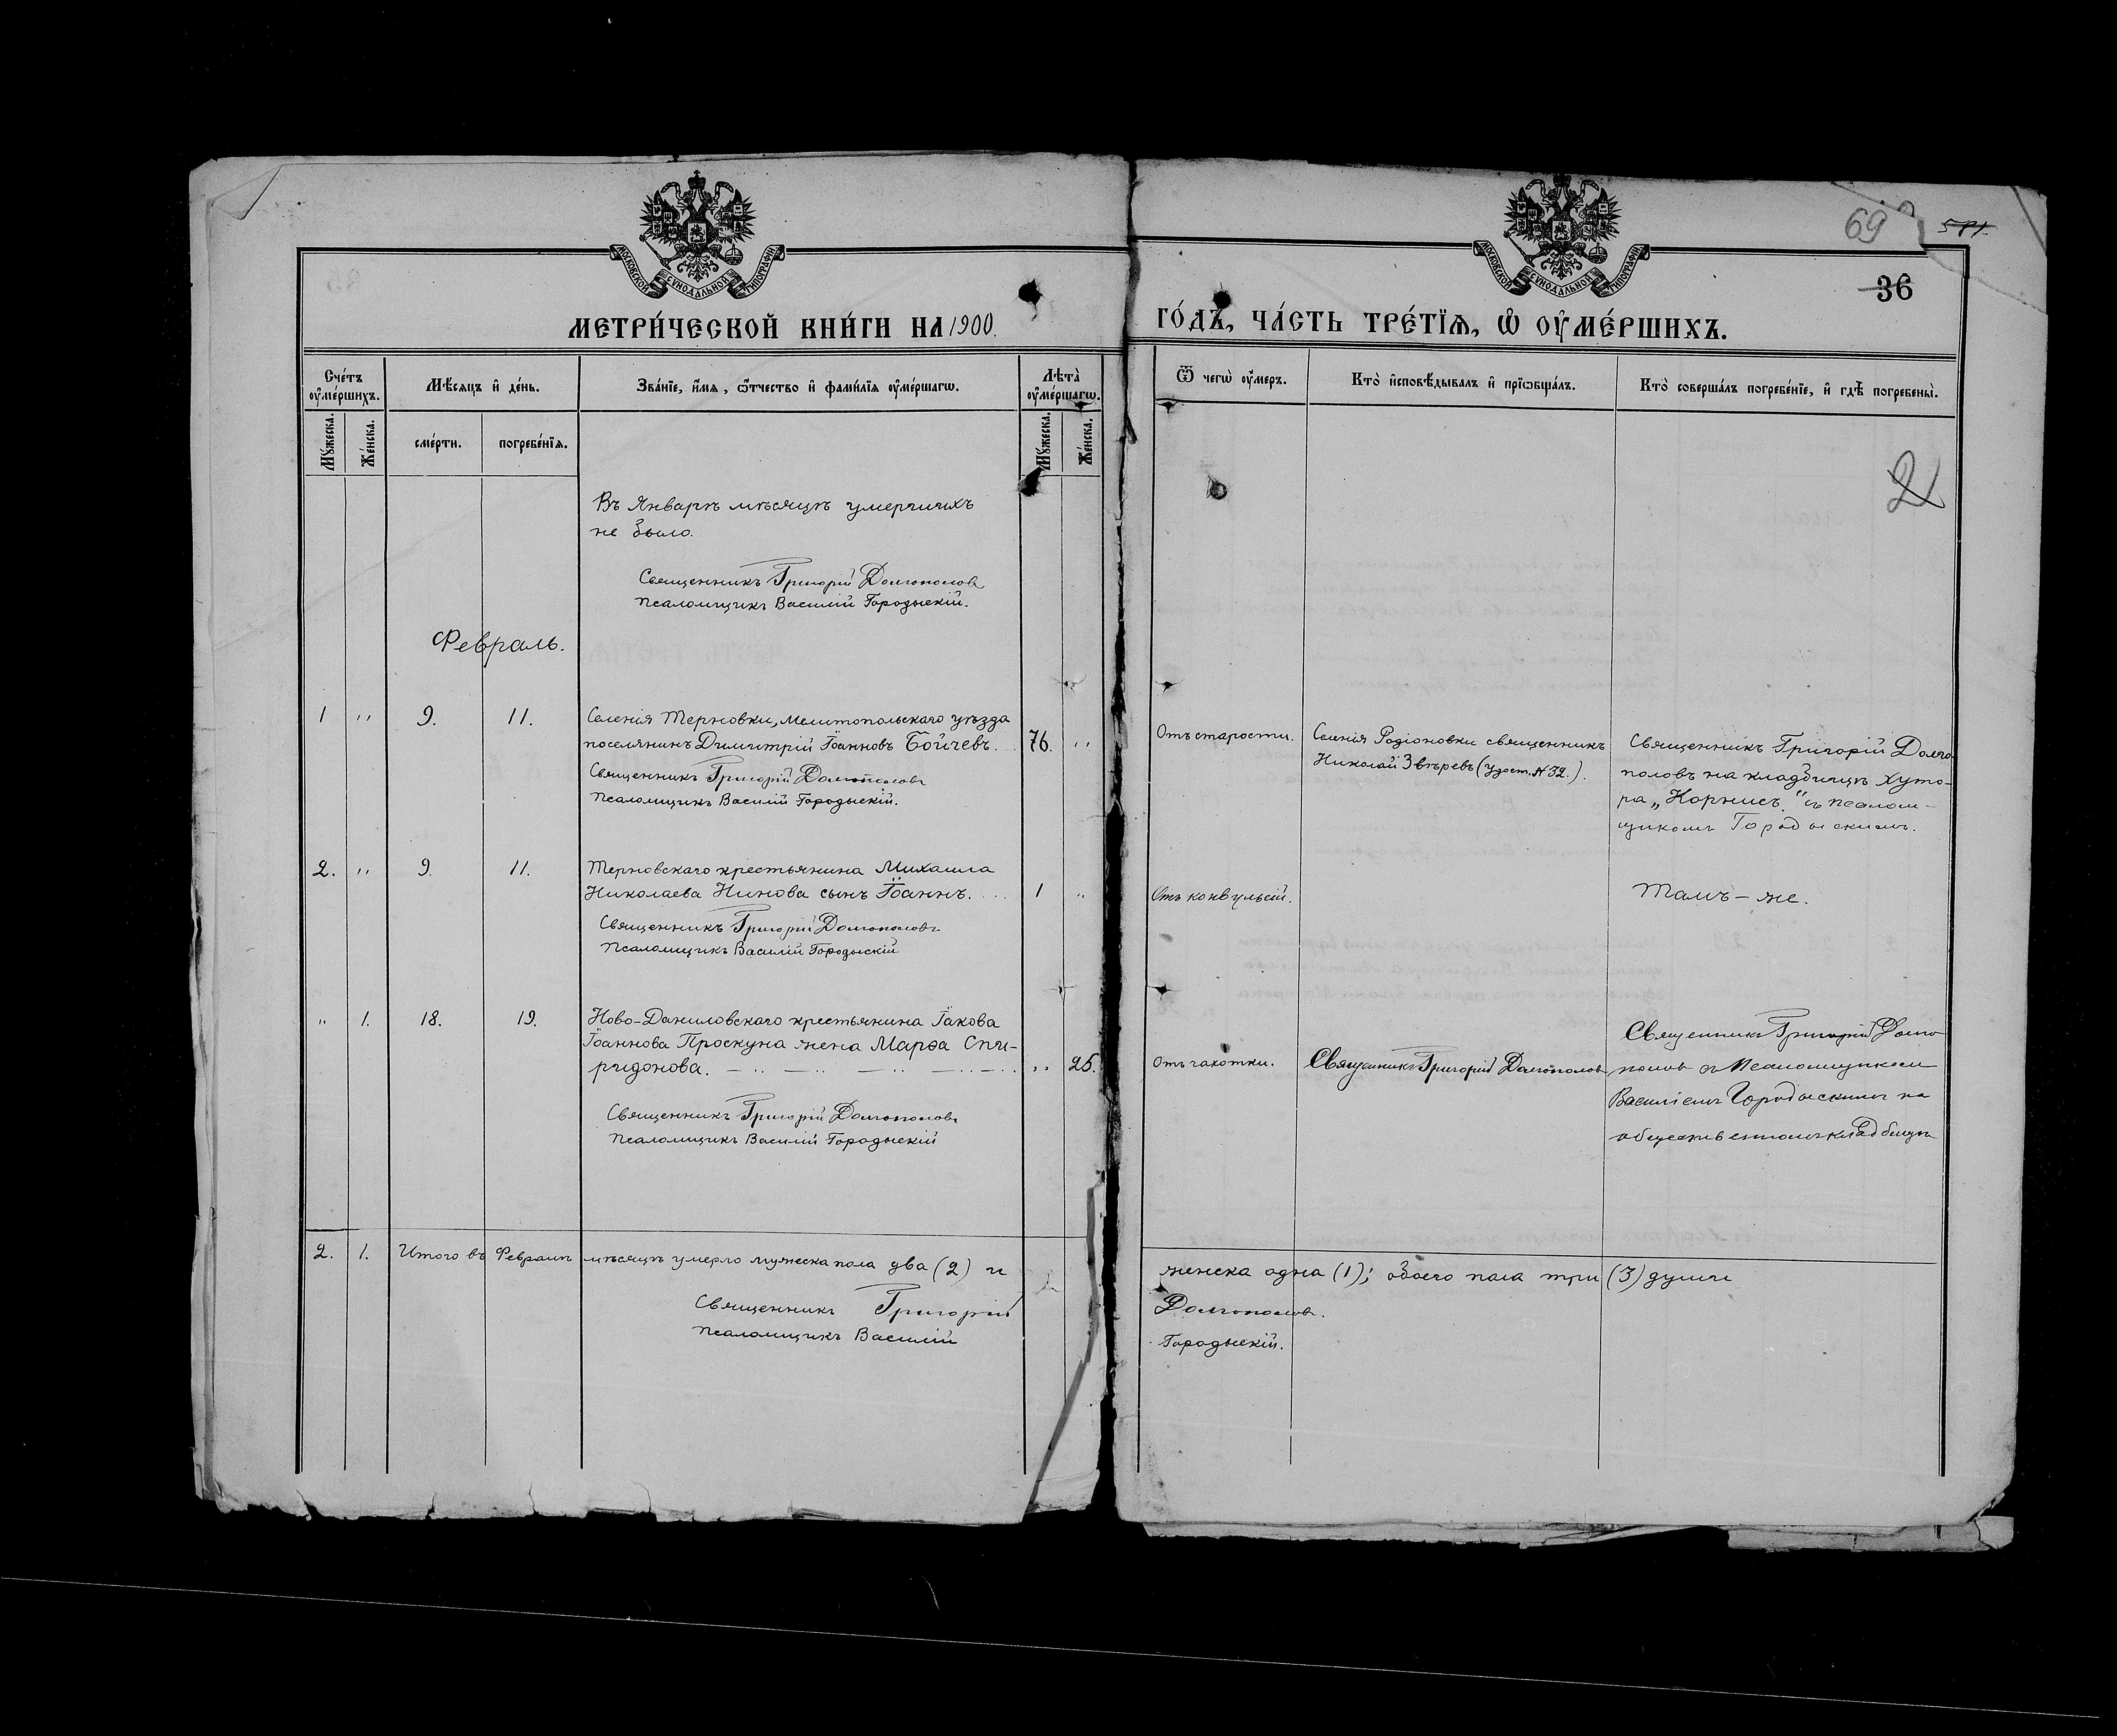 МОСКОВСКОЙ СѴНОДАЛЬНОЙ ТИПОГРАФІИ.
МОСКОВСКОЙ СѴНОДАЛЬНОЙ ТИПОГРАФІИ.
69
36
МЕТРИ́ЧЕСКОЙ КНИ́ГИ НА 1900.
ГО́ДЪ, ЧА́СТЬ ТРЕ́ТЇѦ, Ѡ҆ ОУ҆МЕ́РШИХЪ.
Сче́тъ оу҆ме́ршихъ.
Мꙋ́жеска.
Же́нска.
Мѣ́сяцъ и҆ де́нь.
сме́рти.
погребе́нїѧ.
Зва́нїе, и҆́мѧ, ѻ҆́тчество и҆ фами́лїѧ оу҆ме́ршагѡ.
Лѣта̀ оу҆ме́ршагѡ.
Мꙋ́жеска.
Же́нска.
Ѿ чегѡ̀ оу҆́меръ.
Кто̀ и҆сповѣ́дывалъ и҆ прїѡбща́лъ.
Кто̀ соверша́лъ погребе́нїе, и҆ гдѣ̀ погребены̀.
2
Въ Январѣ мѣсяцѣ умершихъ
не было.
Священникъ Григорій Долгополовъ
Псаломщикъ Василій Городыскій.
Февраль.
1 " 9. 11. Селенія Терновки, Мелитопольскаго уѣзда
поселянинъ Димитрій Іоанновъ Бойчевъ. 76. "
Священникъ Григорій Долгополовъ
Псаломщикъ Василій Городыскій.
Отъ старости.
Селенія Родіоновки священникъ
Николай Звѣревъ (удост. № 32.).
Священникъ Григорій Долго-
половъ на кладбищѣ хуто-
ра „Корнисъ" съ псалом-
щикомъ Городыскимъ.
2. " 9. 11. Терновскаго крестьянина Михаила
Николаева Нинова сынъ Іоаннъ. 1 "
Священникъ Григорій Долгополовъ
Псаломщикъ Василій Городыскій
Отъ конвульсій.
Тамъ-же.
" 1. 18. 19. Ново-Даниловскаго крестьянина Іакова
Іоаннова Проскуна жена Марѳа Спи-
ридонова. " 25.
Священникъ Григорій Долгополовъ
Псаломщикъ Василій Городыскій
Отъ чахотки.
Священникъ Григорій Долгополовъ
Священникъ Григорій Долго
половъ съ Псаломщикомъ
Василіемъ Городыскимъ на
общественномъ кладбищѣ
2. 1. Итого въ Февралѣ мѣсяцѣ умерло мужеска пола два (2) и
женска одна (1); обоего пола три (3) души
Священникъ Григорій
Долгополовъ.
Псаломщикъ Василій
Городыскій.